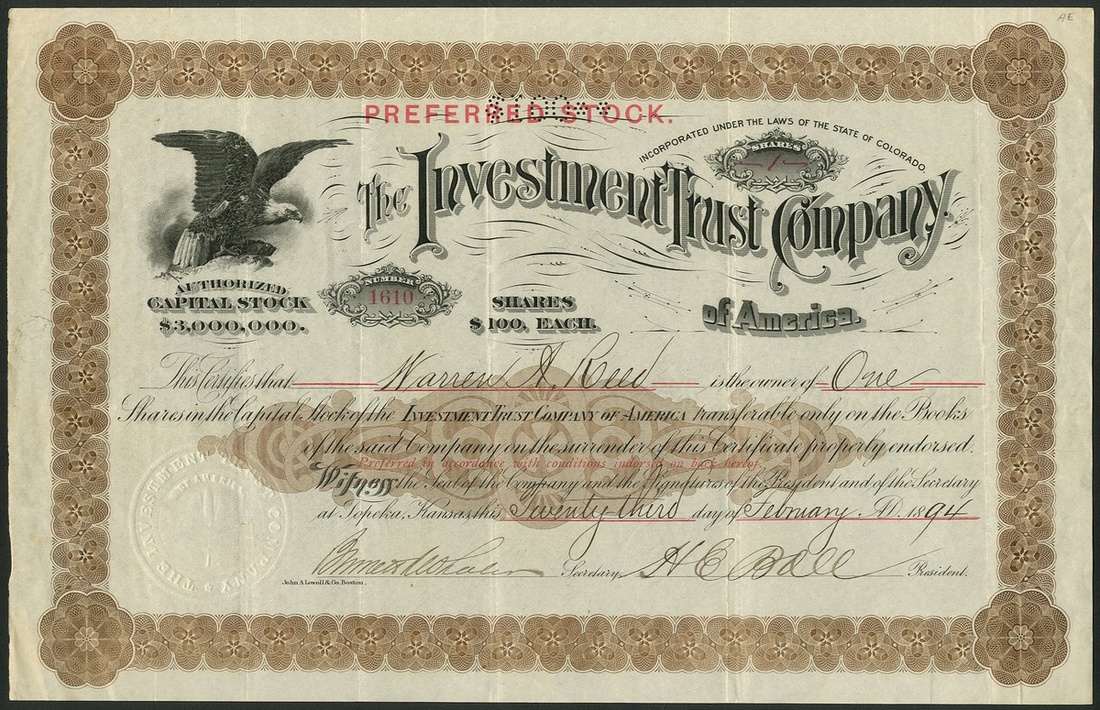 AE
PREFERRED STOCK.
INCORPORATED UNDER THE LAWS OF THE STATE OF COLORADO.
SHARES
1
The Investment Trust Company
of America.
AUTHORIZED
CAPITAL STOCK
$3,000,000.
NUMBER
1610
SHARES
$100, EACH.
This Certifies that Warren A. Reed is the owner of One
Shares in the Capital Stock of the INVESTMENT TRUST COMPANY OF AMERICA transferable only on the Books
of the said Company on the surrender of this Certificate properly endorsed.
Preferred in accordance with conditions indorsed on back hereof.
Witness the Seal of the Company and the Signatures of the President and of the Secretary
at Topeka, Kansas, this Twenty third day of February A.D. 1894
Secretary, H E Ball President.
John A Lowell & Co. Boston.
THE INVESTMENT TRUST COMPANY
OF AMERICA